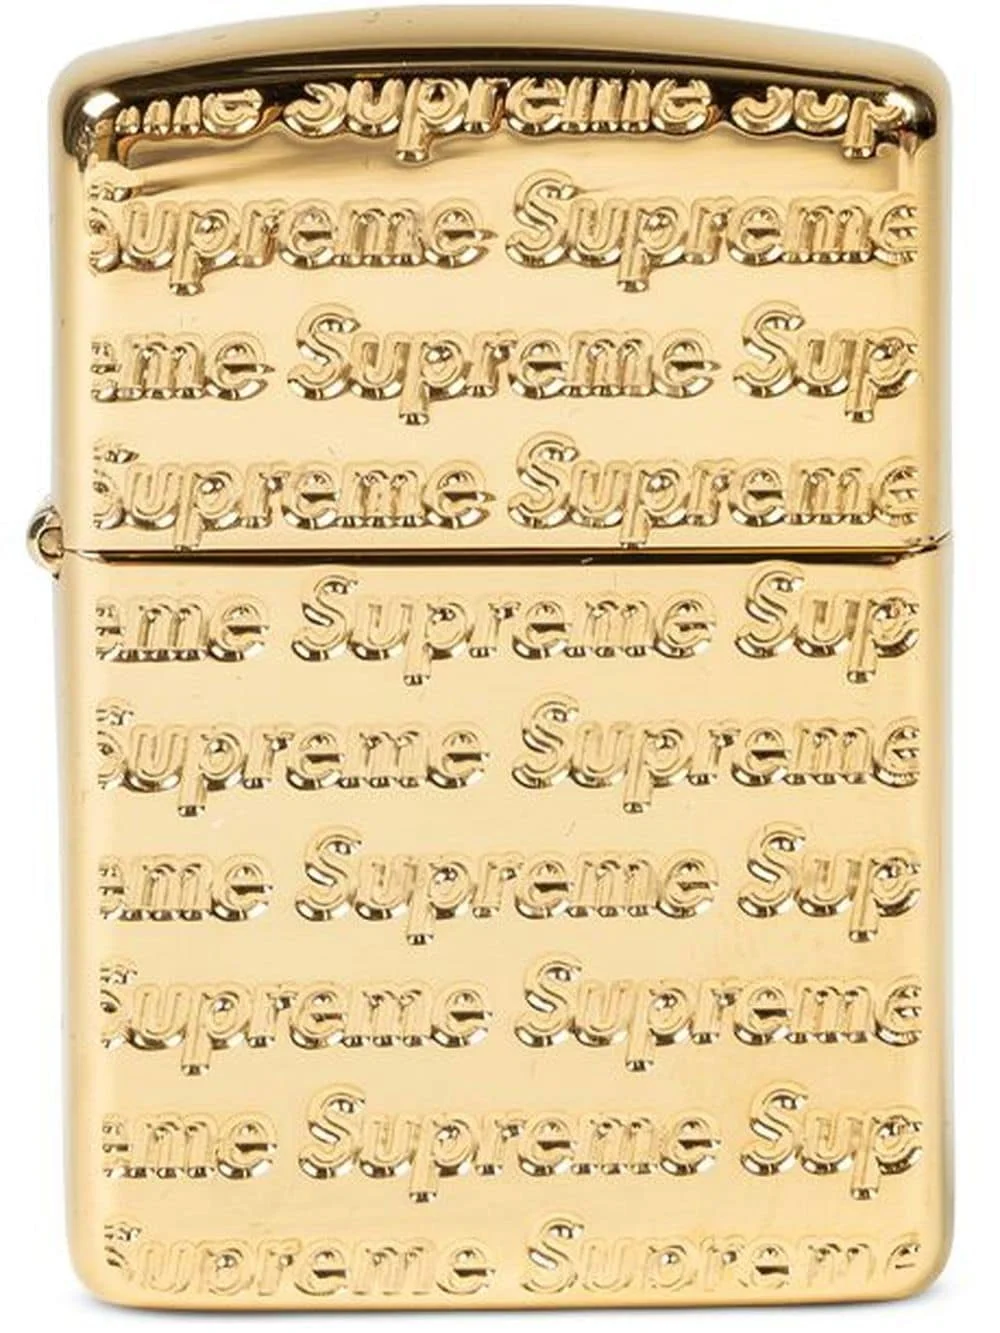 me Supreme Sup
Supreme Supreme
eme Supreme Sup
Supreme Supreme
eme Supreme Sup
Supreme Supreme
eme Supreme Sup
Supreme Supreme
eme Supreme Sup
Supreme Supreme